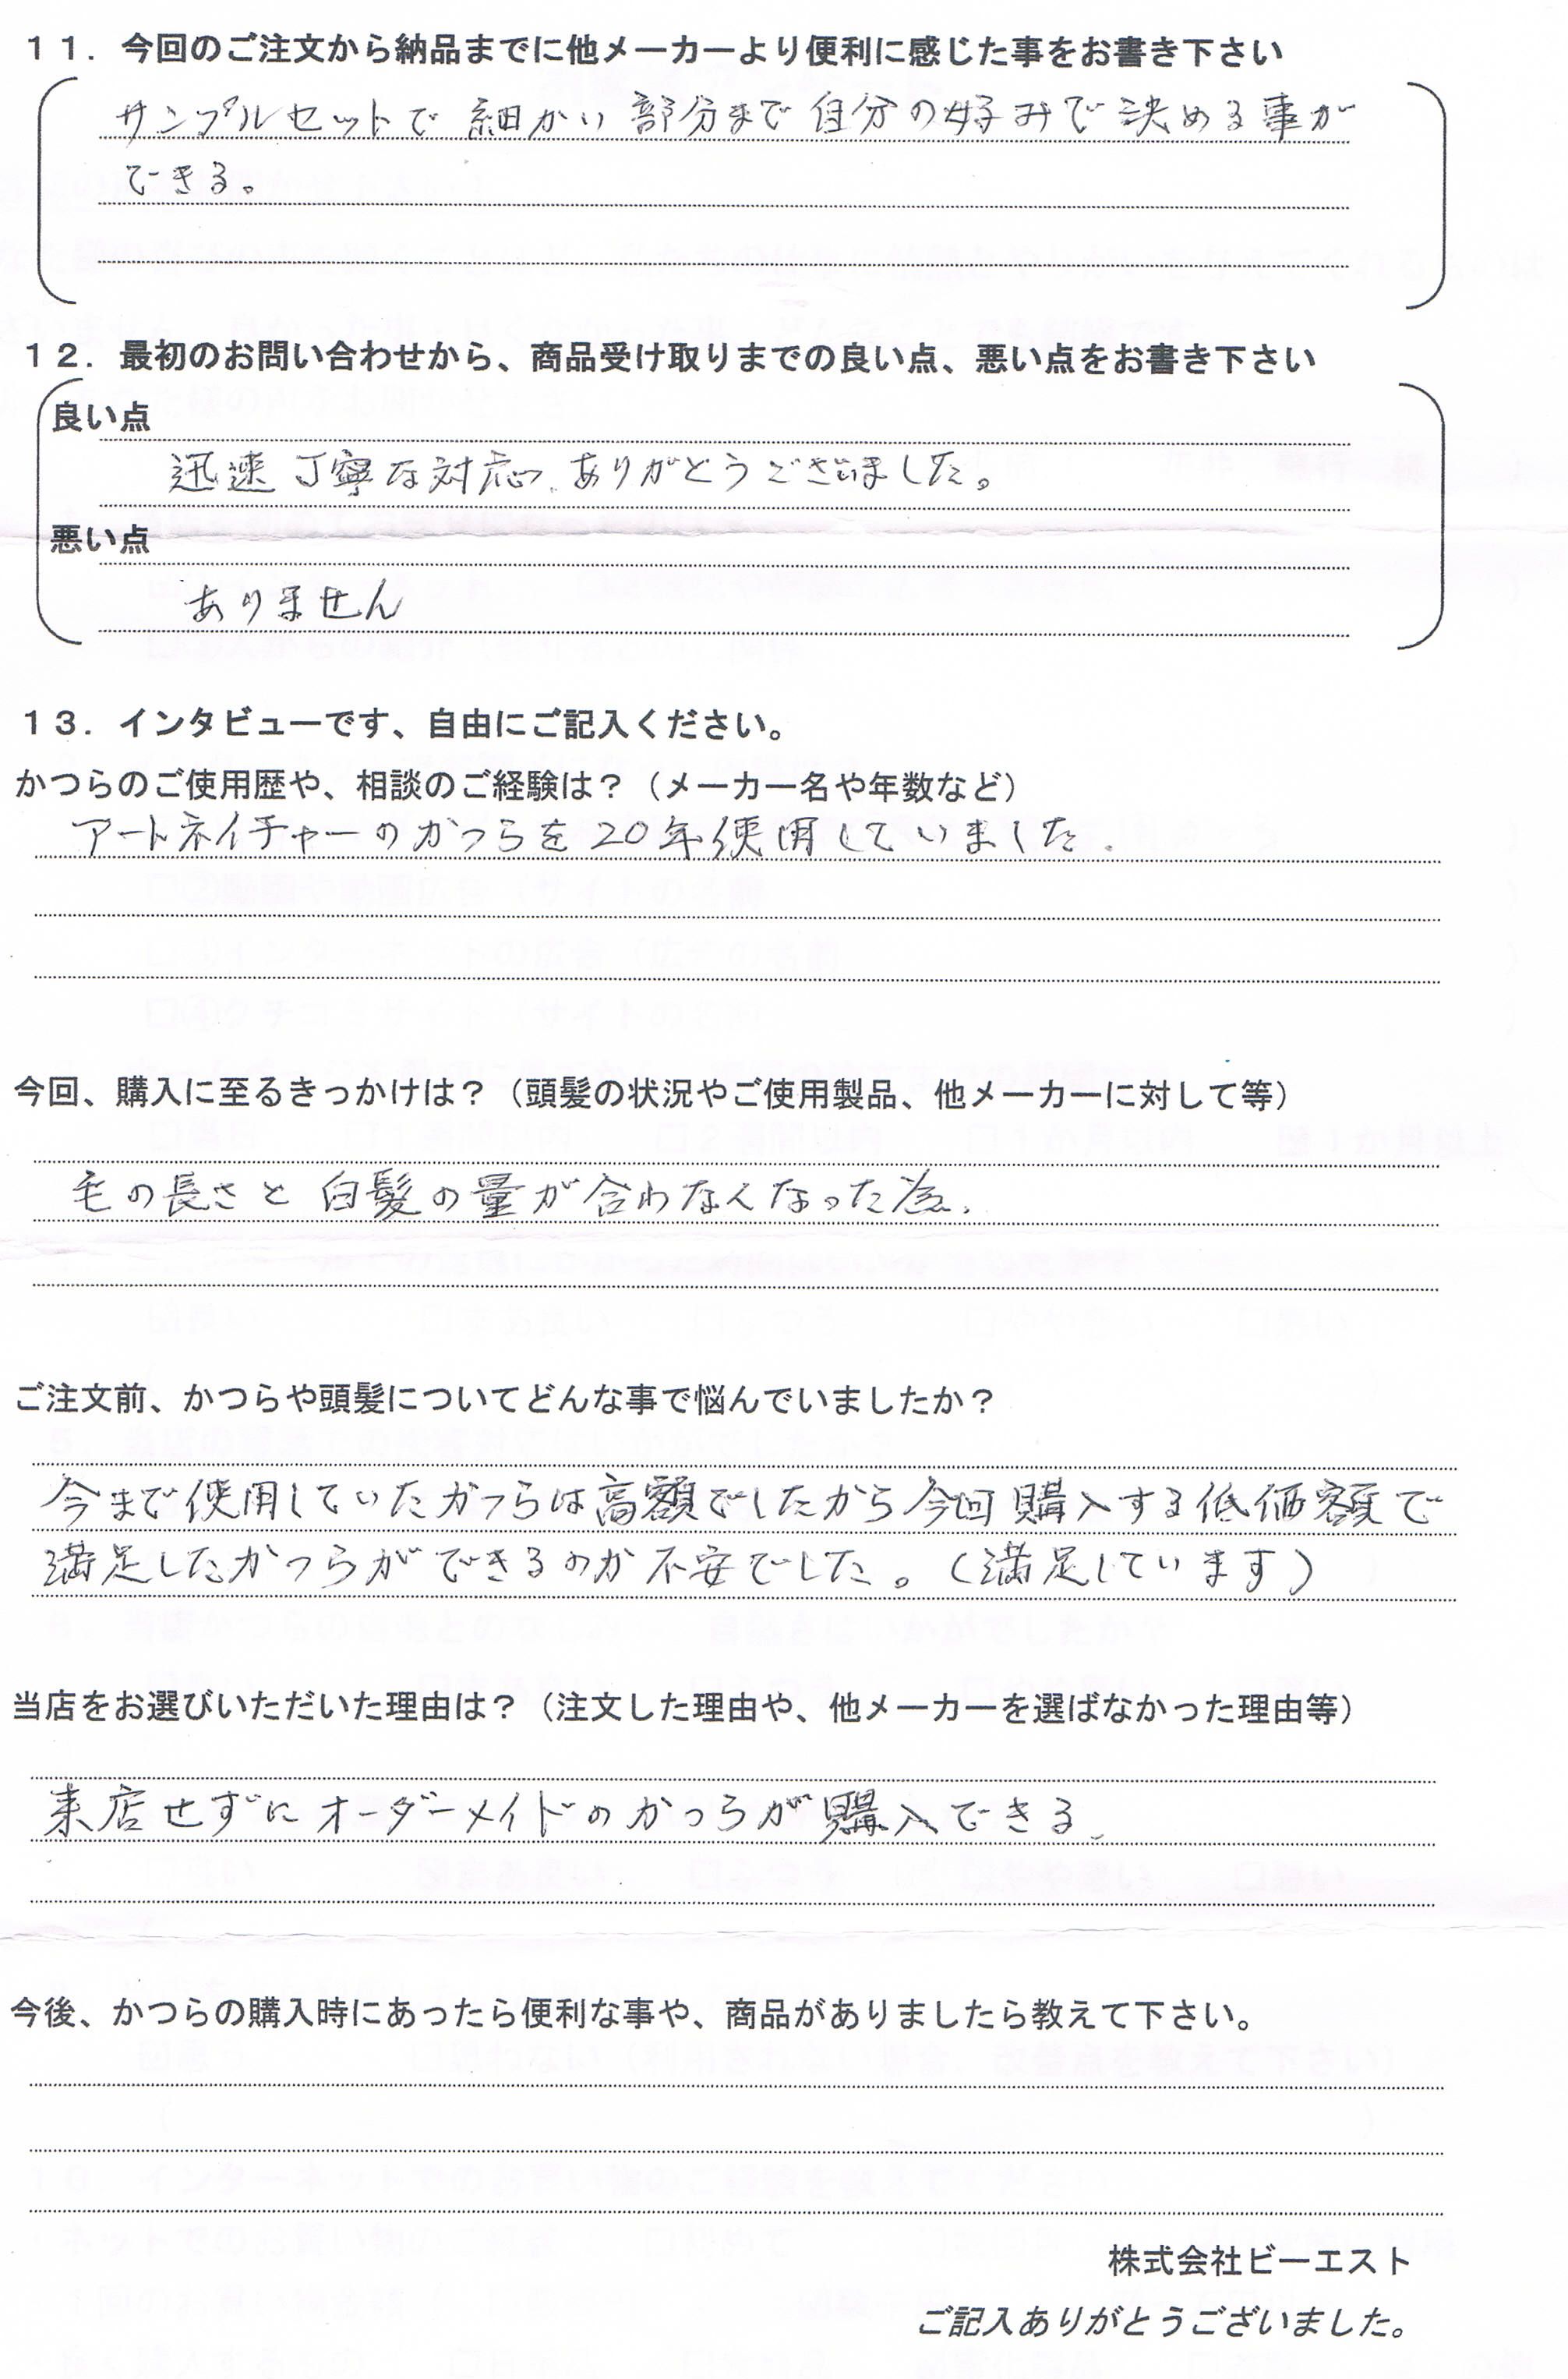 １１．今回のご注文から納品までに他メーカーより便利に感じた事をお書き下さい
サンプルセットで 細かい 部分まで 自分の好みで 決める事が
できる。
１２．最初のお問い合わせから、商品受け取りまでの良い点、悪い点をお書き下さい
良い点
迅速 丁寧な対応、ありがとうございました。
悪い点
ありません
１３．インタビューです、自由にご記入ください。
かつらのご使用歴や、相談のご経験は？（メーカー名や年数など）
アートネイチャーのかつらを20年使用していました.
今回、購入に至るきっかけは？（頭髪の状況やご使用製品、他メーカーに対して等）
毛の長さと 白髪の量が合わなくなった為.
ご注文前、かつらや頭髪についてどんな事で悩んでいましたか？
今まで使用していたかつらは高額でしたから今回購入する低価額で
満足したかつらができるのか不安でした。(満足しています)
当店をお選びいただいた理由は？（注文した理由や、他メーカーを選ばなかった理由等）
来店せずにオーダーメイドのかつらが購入できる
今後、かつらの購入時にあったら便利な事や、商品がありましたら教えて下さい。
株式会社ビーエスト
ご記入ありがとうございました。